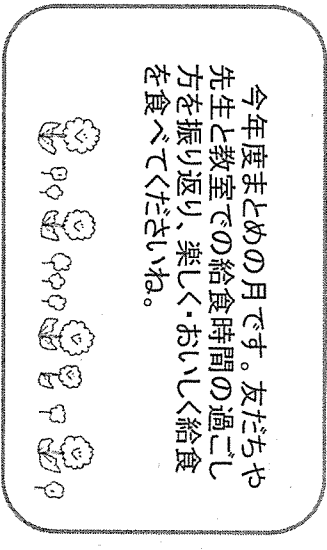 今年度まとめの月です。友だちや
先生と教室での給食時間の過ごし
方を振り返り、楽しく・おいしく給食
を食べてくださいね。